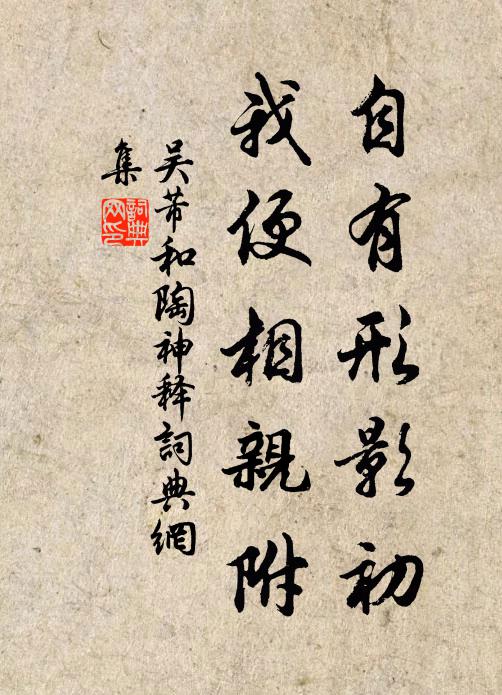 自有形影初
我便相親附
吴芾和陶神释詞典網
集
詞典網印